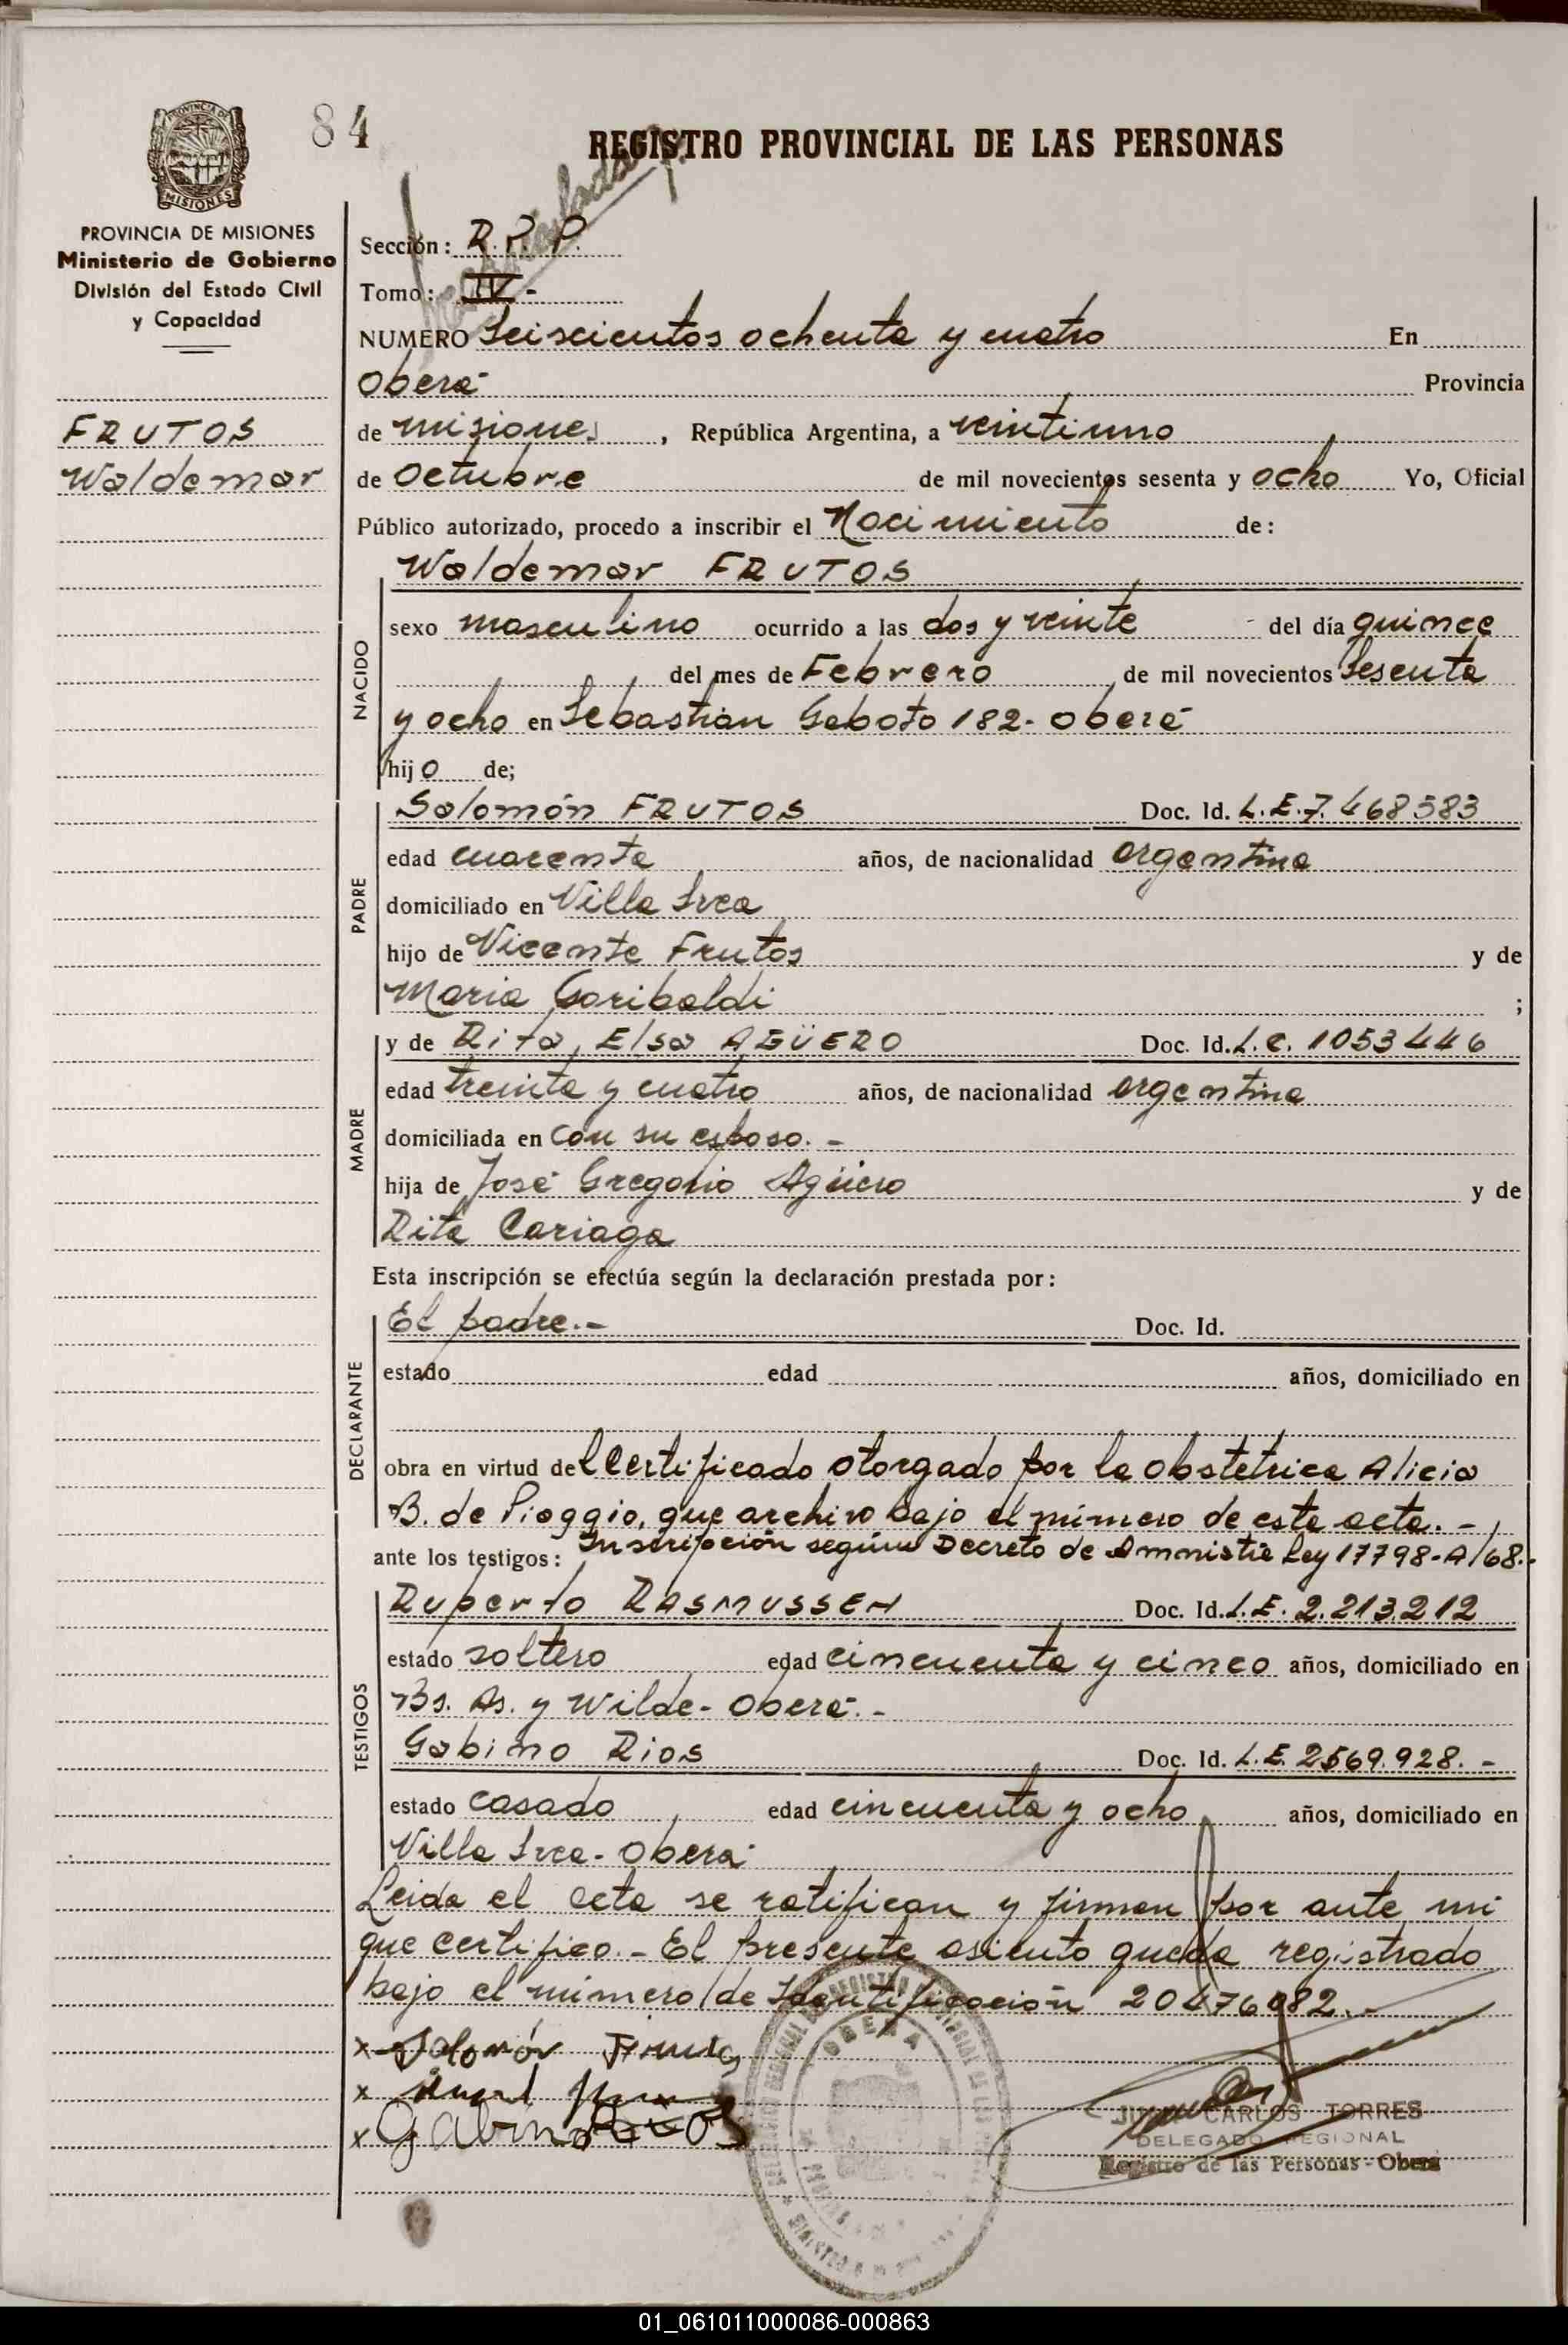 84
REGISTRO PROVINCIAL DE LAS PERSONAS
MISIONES
PROVINCIA DE MISIONES
Ministerio de Gobierno
División del Estado Civil
y Capacidad
FRUTOS
Waldemar
Sección: R.P.P.
Tomo: IV -
NUMERO Seiscientos ochenta y cuatro En
Oberá Provincia
de misiones, República Argentina, a veintiuno
de Octubre de mil novecientos sesenta y ocho Yo, Oficial
Público autorizado, procedo a inscribir el Nacimiento de:
Waldemar FRUTOS
NACIDO
sexo masculino ocurrido a las dos y veinte del día quince
del mes de Febrero de mil novecientos Sesenta
y ocho en Sebastián Gaboto 182- Oberá
hijo de;
PADRE
Salomón FRUTOS Doc. Id. L.E.7.468383
edad cuarenta años, de nacionalidad argentina
domiciliado en Villa Svea
hijo de Vicente Frutos y de
Maria Garibaldi ;
MADRE
y de Rita Elsa AGÜERO Doc. Id. L.C. 1053446
edad treinta y cuatro años, de nacionalidad argentina
domiciliada en con su esposo. -
hija de José Gregorio Agüero y de
Rita Cariaga
Esta inscripción se efectúa según la declaración prestada por:
DECLARANTE
El padre.- Doc. Id.
estado edad años, domiciliado en
obra en virtud del Certificado otorgado por la obstetrica Alicia
B. de Pioggio, que archivo bajo el número de este acta. -
ante los testigos: Inscripción según Decreto de Amnistia Ley 17798-A/68.-
TESTIGOS
Ruperto RASMUSSEN Doc. Id. L.E. 2.213.212
estado soltero edad cincuenta y cinco años, domiciliado en
Bs. As. y Wilde- Oberá.-
Gabino Rios Doc. Id. L.E. 2569.928. -
estado casado edad cincuenta y ocho años, domiciliado en
Villa Svea- Oberá
Leida el acta se ratifican y firman por ante mi
que certifico.- El presente asiento queda registrado
bajo el número de Identificación 20476082.-
x Salomón Frutos
x
x Gabino Rios
OBERA
JUAN CARLOS TORRES
DELEGADO REGIONAL
Registro de las Personas - Oberá
01_061011000086-000863